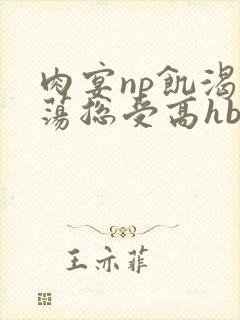 肉宴np飢渴
蕩总受高hb
王亦菲